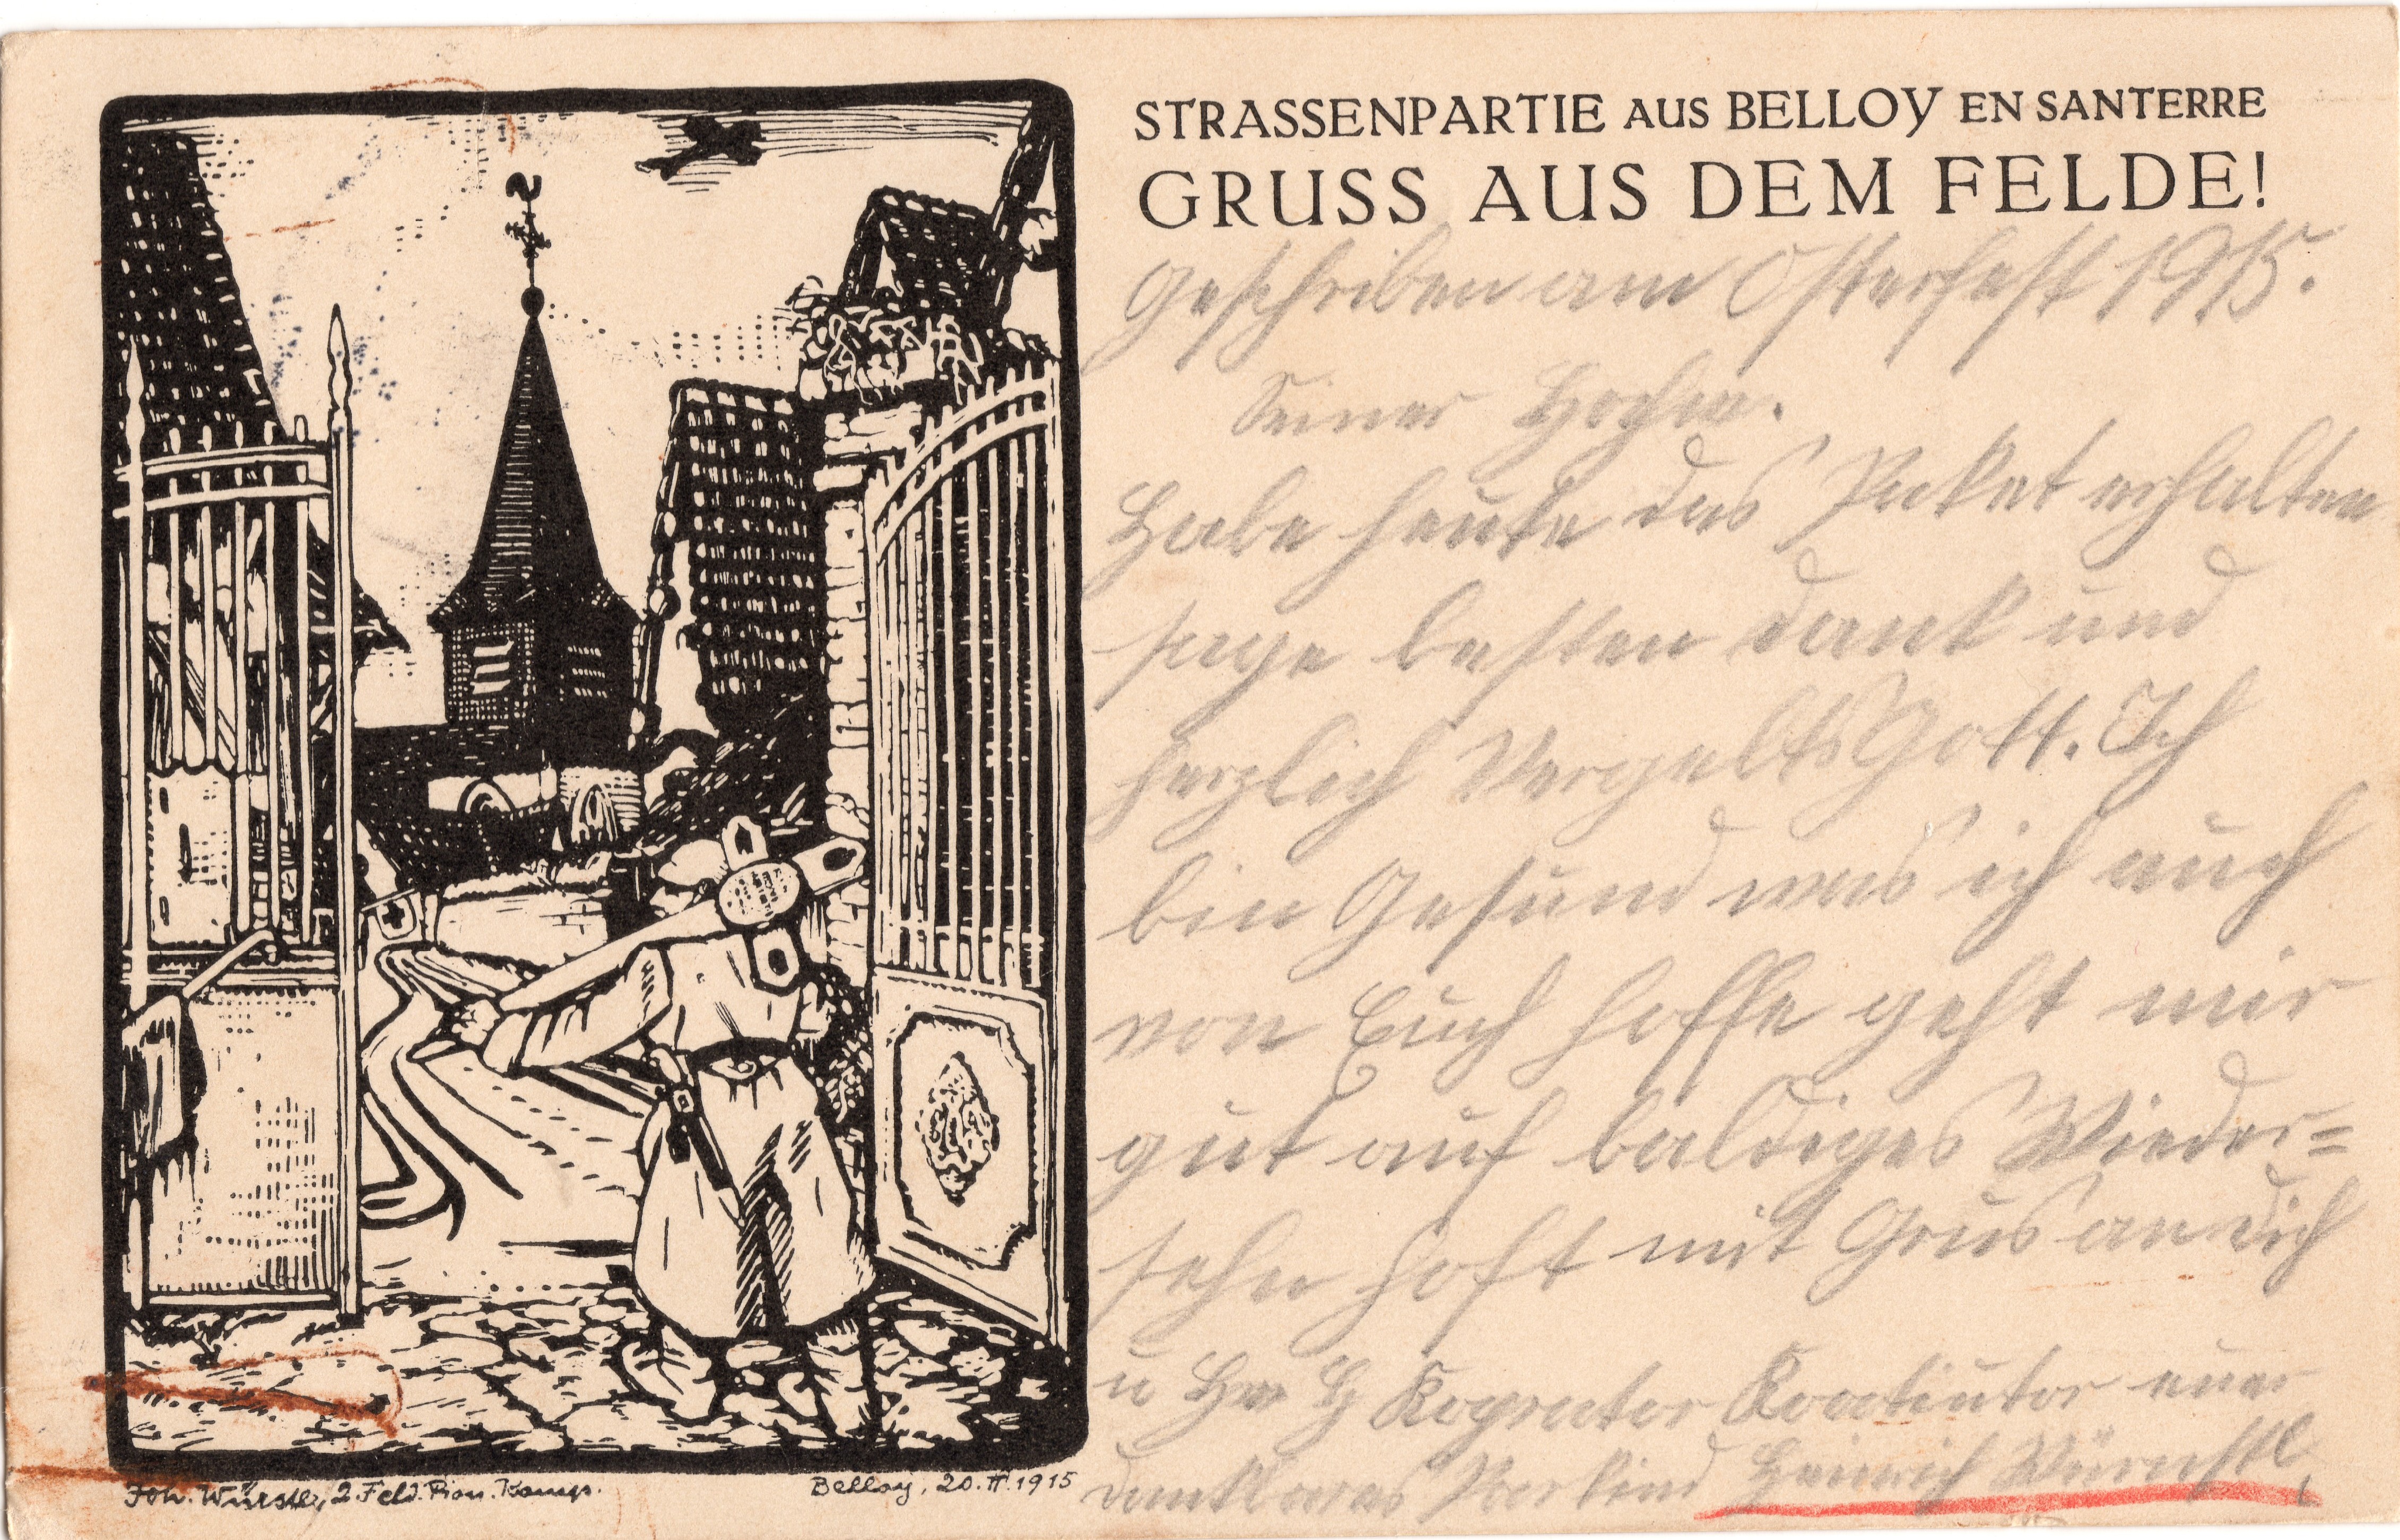 STRASSENPARTIE AUS BELLOY EN SANTERRE
GRUSS AUS DEM FELDE!
Geschriben am Osterfest 1915.
Seiner Hochw.
Habe heute das Paket erhalten
sage besten dank und
herzlich Vergelts Gott. Ich
bin Gesund was ich auch
von Euch hoffe geht mir
gut auf baldiges Wieder=
sehn hoft mit Grus an dich
u H Koprator Koatiutor euer
dankbares Heinrich
Joh. Würstl, 2. Feld. Pion. Komp.
Belloy, 20.II.1915